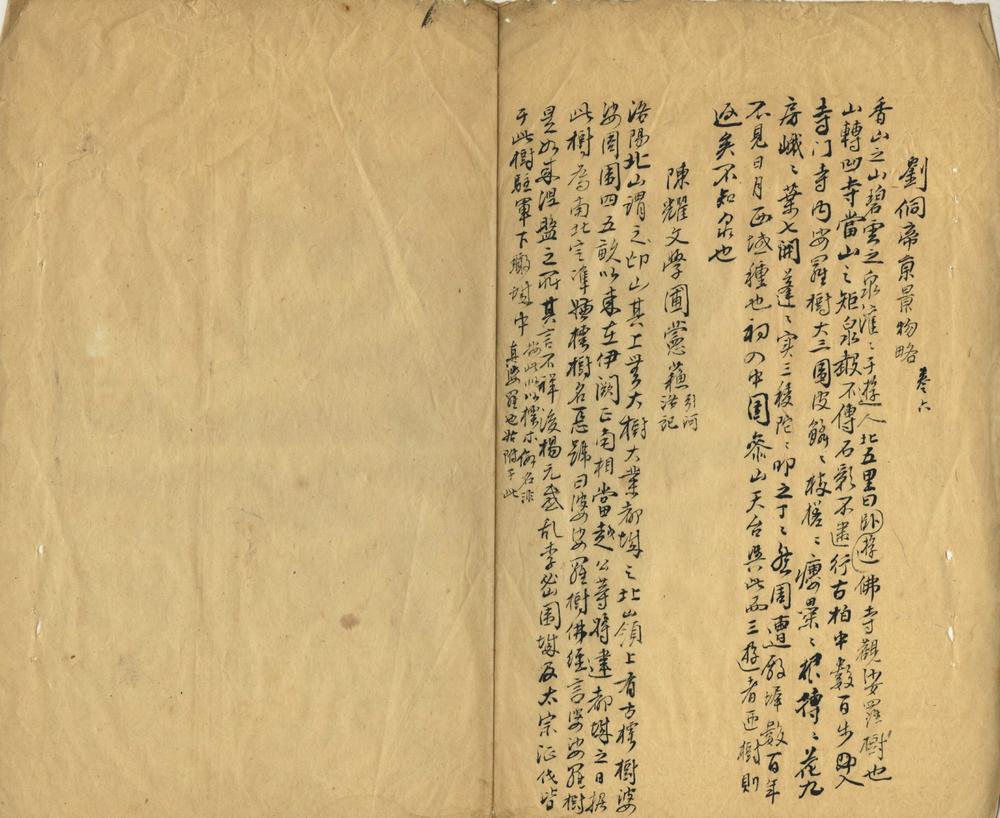 劉侗帝京景物略 卷六
香山之山碧雲之泉灌〻于遊人北五里曰卧遊佛寺觀娑羅樹也
山轉凹寺當山之矩泉聲不傳石影不逮行古柏中數百步即入
寺门寺内娑羅樹大三圍皮鱗〻枝槎〻癭纍〻根摶〻花九
房峨〻葉七開蓬〻实三稜陀〻叩之丁〻然周遭殿墀數百年
不見日月西域種也初入中国崇山天台與此而三遊者匝樹則
返矣不知泉也
陳耀文學圃蕙蘇 引河洛記
洛陽北山謂之邙山其上無大樹大業都城之北山領上有方檴樹婆
娑周圍四五畝以来在伊阙正南相當越公等將建都城之日據
此樹為南北定準嫌檴樹名惡號曰婆娑羅樹佛經言婆娑羅樹
是如来涅盤之所其言不祥後楊元感乱李密圍城及太宗征伐皆
于此樹駐軍下瞰城中 按此似以檴木假名非
真娑羅也姑附于此